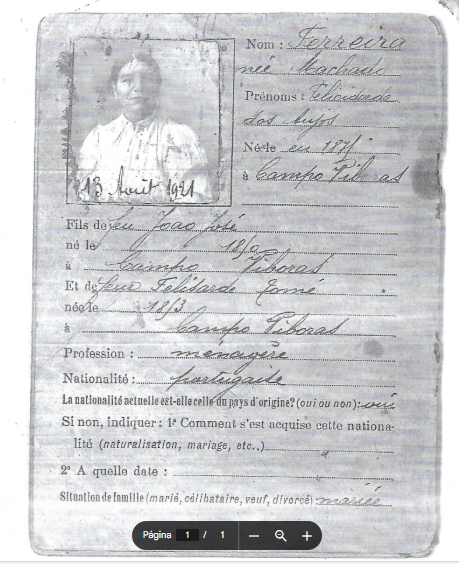 Nom : Ferreira
née Machado
Prénoms : Felisarda
dos Anjos
Né le en 187
à Campo
13 Août 1921
Fils de feu Joao José
né le
à Campo Viboras
Et de feue Felisarde Tomé
née le
à Campo Viboras
Profession : menagère
Nationalité : portugaise
La nationalité actuelle est-elle celle du pays d'origine? (oui ou non) : oui
Si non, indiquer : 1º Comment s'est acquise cette nationa-
lité (naturalisation, mariage, etc..)
2º A quelle date :
Situation de famille (marié, célibataire, veuf, divorcé) mariée
Página 1 / 1